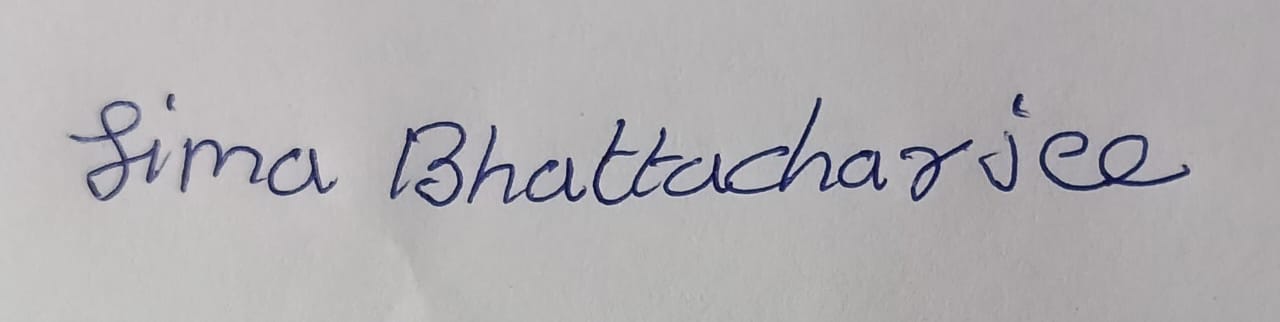 Sima Bhattacharjee